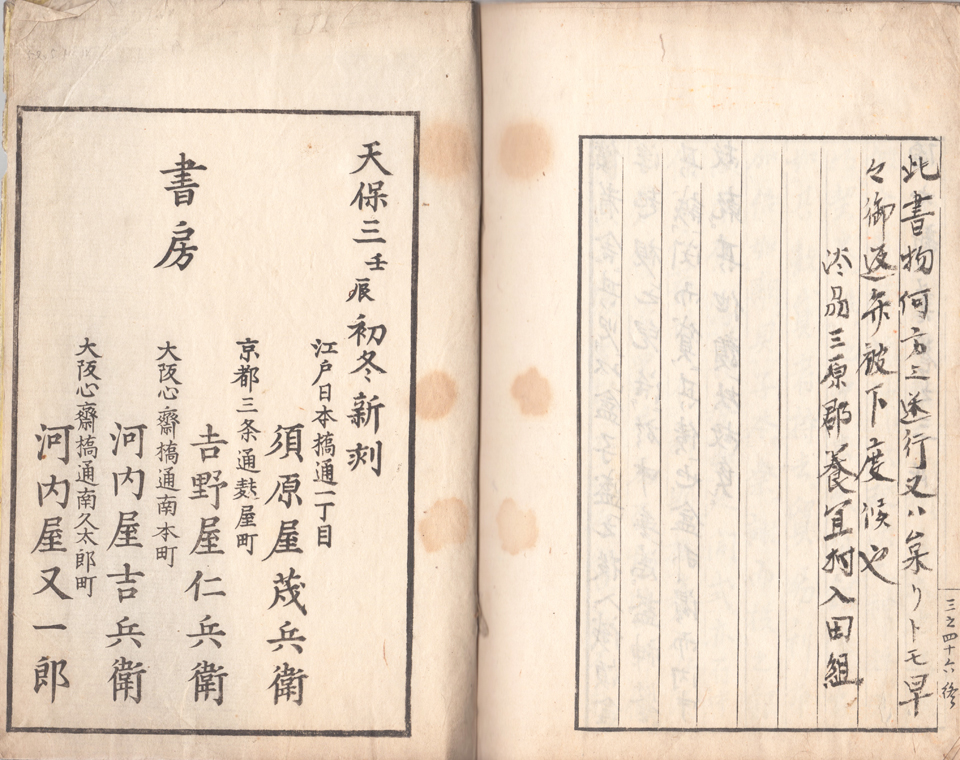 此書物何方ニ送行又ハ杲リトモ早
々御返弁被下度候也
淡刕三原郡養宜村入田組
三之四十六終
天保三壬辰初冬新刻
江戸日本橋通一丁目
須原屋茂兵衛
京都三条通麩屋町
𠮷野屋仁兵衛
大阪心齋橋通南本町
河内屋吉兵衛
大阪心齋橋通南久太郎町
河内屋又一郎
書房